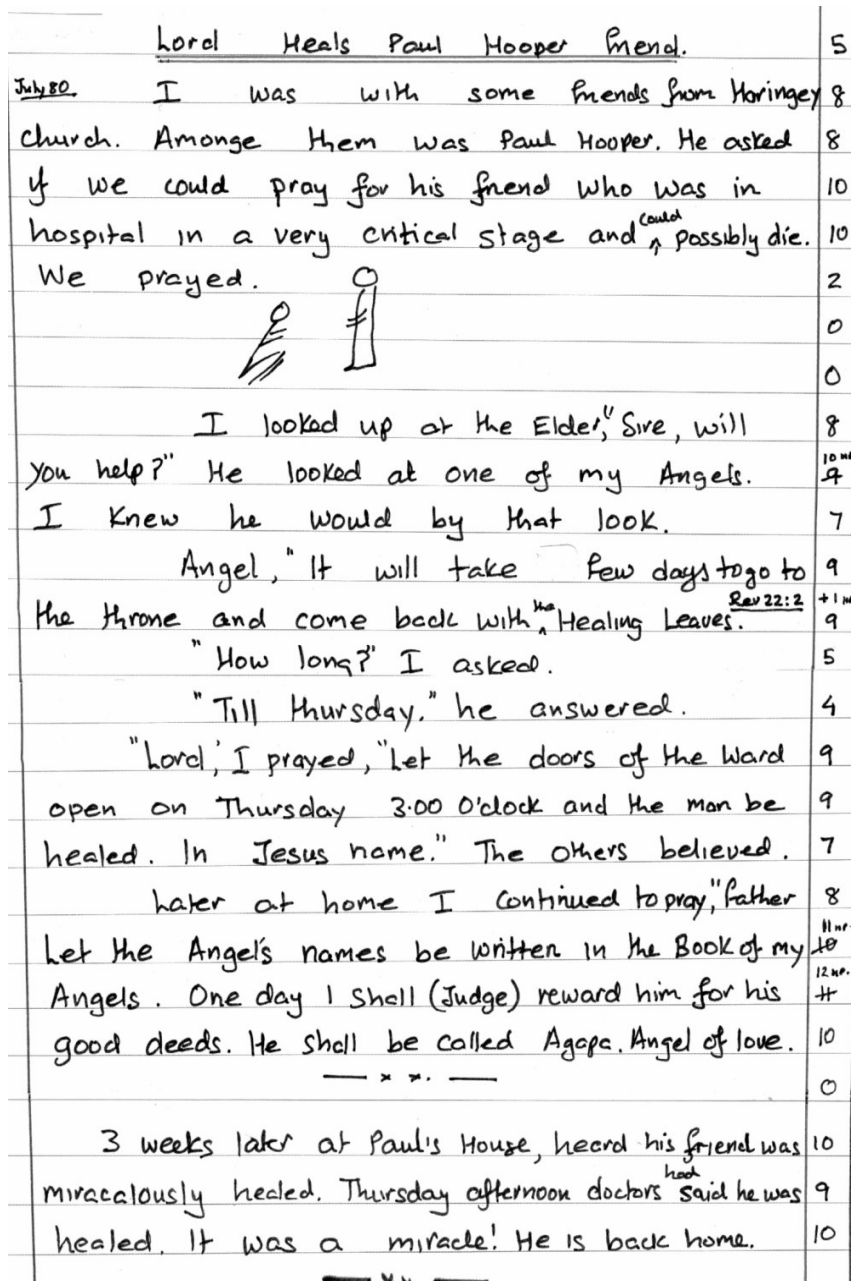 Lord Heals Paul Hooper friend. 5
July 80 I was with some friends from Haringey 8
church. Amonge them was Paul Hooper. He asked 8
if we could pray for his friend who was in 10
hospital in a very critical stage and could possibly die. 10
We prayed. 2
0
0
I looked up at the Elder, "Sire, will 8
you help?" He looked at one of my Angels. 9
I knew he would by that look. 7
Angel, "It will take few days to go to 9
the throne and come back with the Healing Leaves. Rev 22:2 9
"How long?" I asked. 5
"Till thursday." he answered. 4
"Lord,' I prayed, "Let the doors of the Ward 9
open on Thursday 3.00 O'clock and the man be 9
healed. In Jesus name." The others believed. 7
Later at home I continued to pray, "father 8
Let the Angel's names be written in the Book of my 10
Angels. One day I shall (Judge) reward him for his 11
good deeds. He shall be called Agapa. Angel of love. 10
0
3 weeks later at Paul's House, heard his friend was 10
miracalously healed. Thursday afternoon doctors had said he was 9
healed. It was a miracle! He is back home. 10